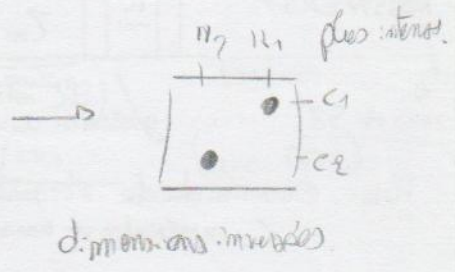 H2 H1 plus intense.
C1
C2
dimensions inversées